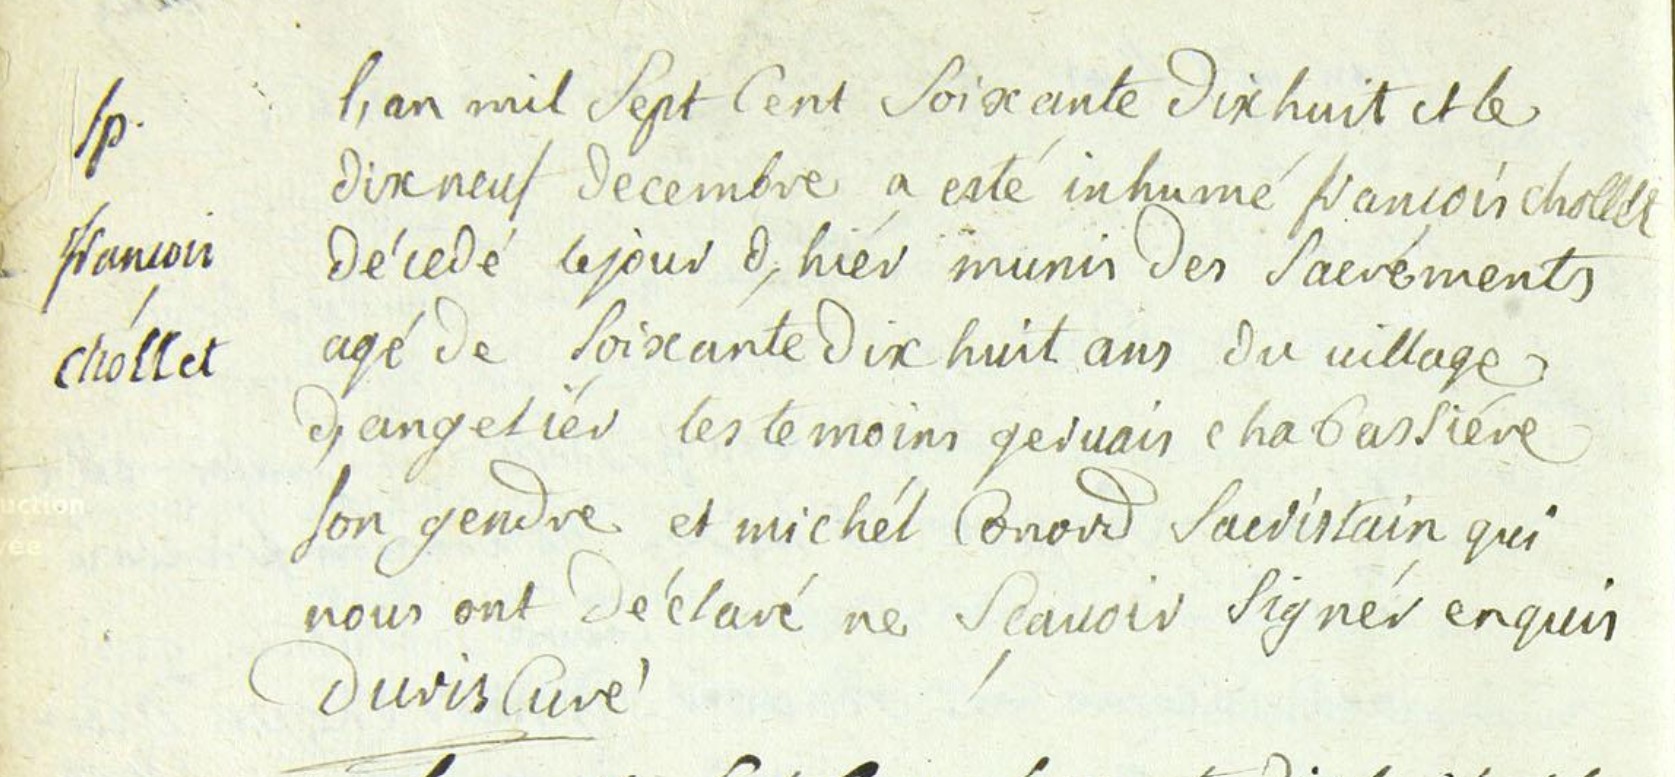 Sp.
françois
chollet
l,an mil Sept Cent Soixante Dixhuit et le
dixneuf decembre a esté inhumé françois chollet
décedé lejour d,hiér munis des Sacréments
agé de Soixante Dix huit ans du uillage
d,angeliér les temoins geruais chabassiére
son gendre et michél Conord Sacristain qui
nous ont déclaré ne Scauoir Signér enquis
Duris Curé